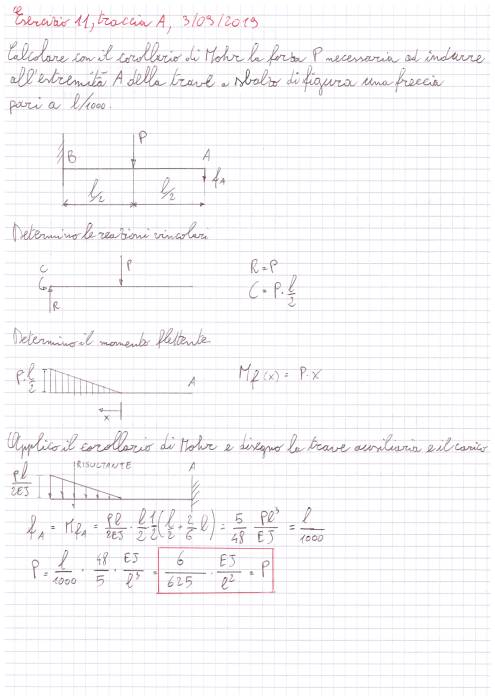 Esercizio 11, traccia A, 3/09/2019
Calcolare con il corollario di Mohr la forza P necessaria ad indurre
all'estremità A della trave a sbalzo di figura una freccia
pari a l/1000.
P
B A
fA
l/2 l/2
Determino le reazioni vincolari
C P R=P
R C = P · l/2
Determino il momento flettente
P · l/2 A Mf(x) = P · x
x
Applico il corollario di Mohr e disegno la trave ausiliaria e il carico
Pl/2EJ RISULTANTE A
fA = MfA = Pl/2EJ · l/2 · 1/2 (l/2 + 2/6 l) = 5/48 Pl³/EJ = l/1000
P = l/1000 · 48/5 · EJ/l³ = 6/625 · EJ/l² = P